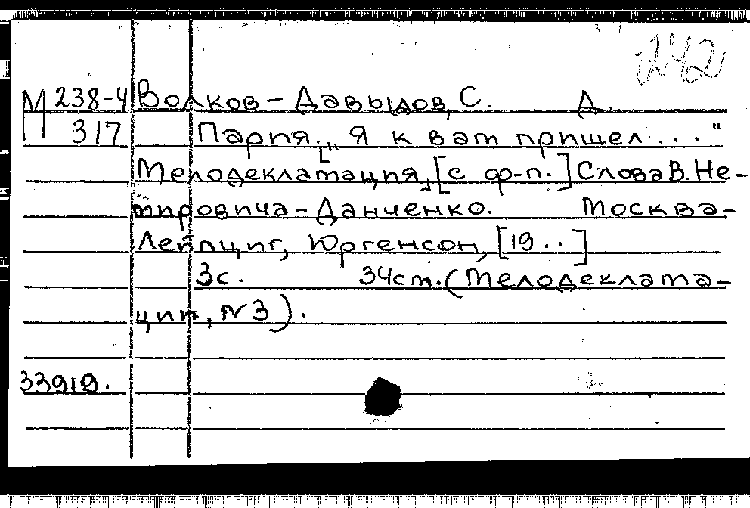 242
М 238-4 Волков-Давыдов, С. Д.
317 Пария. ["Я к вам пришел..."
Мелодекламация, [с ф-п.] Слова В. Не-
мировича-Данченко. Москва-
Лейпциг, Юргенсон, [19..]
3с. 34см. (Мелодеклама-
ции, №3).
33919.